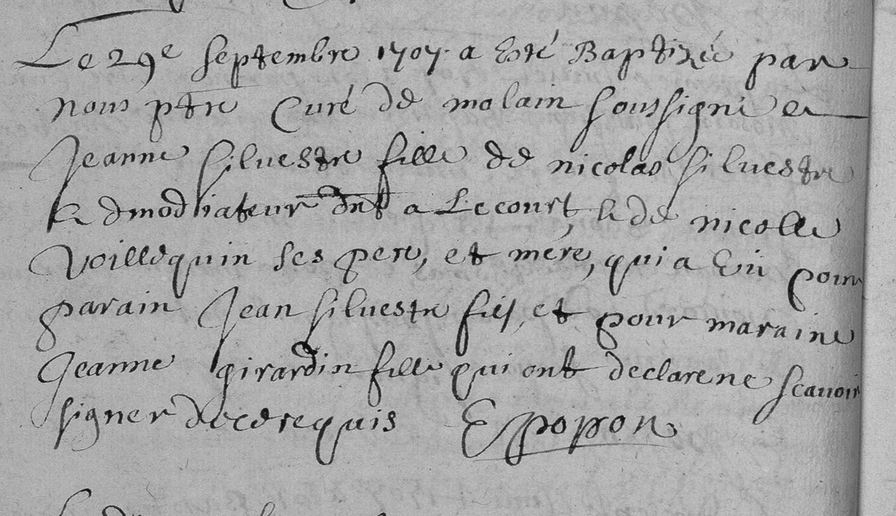 Le 29e septembre 1707 a Esté Baptizée par
nous ptre Curé de malain soussigné
Jeanne silvestre fille de nicolas silvestre
admodiateur dmt a Lecourt, & de nicolle
Voillequin ses pere, et mere, qui a Eü pour
parain Jean silvestre fils, et pour maraine
Jeanne girardin fille qui ont declare ne scavoir
signer de ce requis E popon